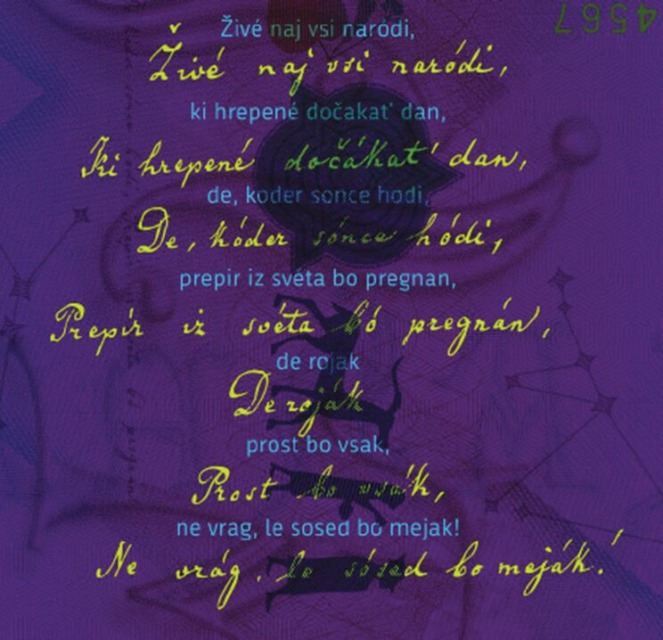 4567
Živé naj vsi naródi,
Živé naj vsi naródi,
ki hrepené dočakat' dan,
Ki hrepené dočákat' dan,
de, koder sonce hodi,
De, kóder sónce hódi,
prepir iz svéta bo pregnan,
Prepír iz svéta bó pregnán,
de rojak
De roják
prost bo vsak,
Prost bo vsák,
ne vrag, le sosed bo mejak!
Ne vrág, le sósed bo meják!